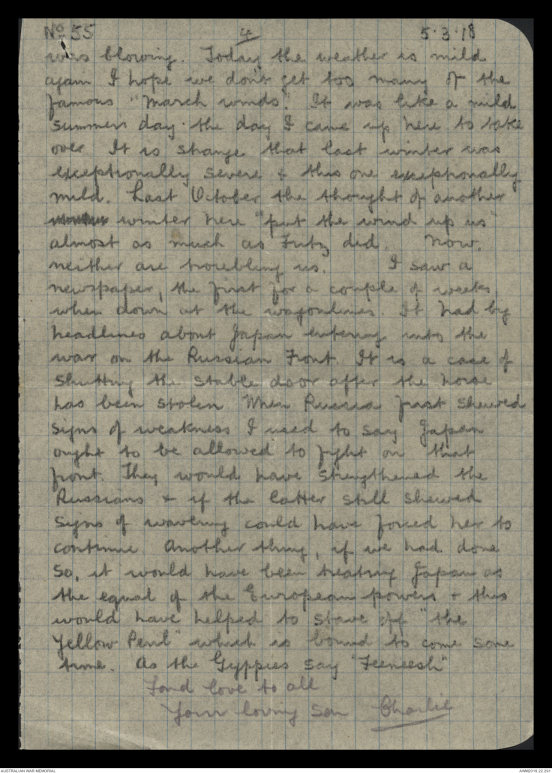 No 55 4 5.3.18
was blowing. Today the weather is mild
again I hope we don't get too many of the
famous "March winds". It was like a mild
summers day the day I came up here to take
over. It is strange that last winter was
exceptionally severe & this one exceptionally
mild. Last October the thought of another
winter here "put the wind up us"
almost as much as Fritz did. Now,
neither are troubling us. I saw a
newspaper, the first for a couple of weeks,
when down at the wagonlines. It had big
headlines about Japan entering into the
war on the Russian Front. It is a case of
shutting the stable door after the horse
has been stolen. When Russia first shewed
signs of weakness I used to say Japan
ought to be allowed to fight on that
front. They would have strengthened the
Russians & if the latter still shewed
signs of wavering could have forced her to
continue. Another thing, if we had done
so, it would have been treating Japan as
the equal of the European powers & this
would have helped to stave off "the
Yellow Peril" which is bound to come some
time. As the Gyppies say "Feeneesh"
Fond love to all
Your loving son Charlie
AUSTRALIAN WAR MEMORIAL